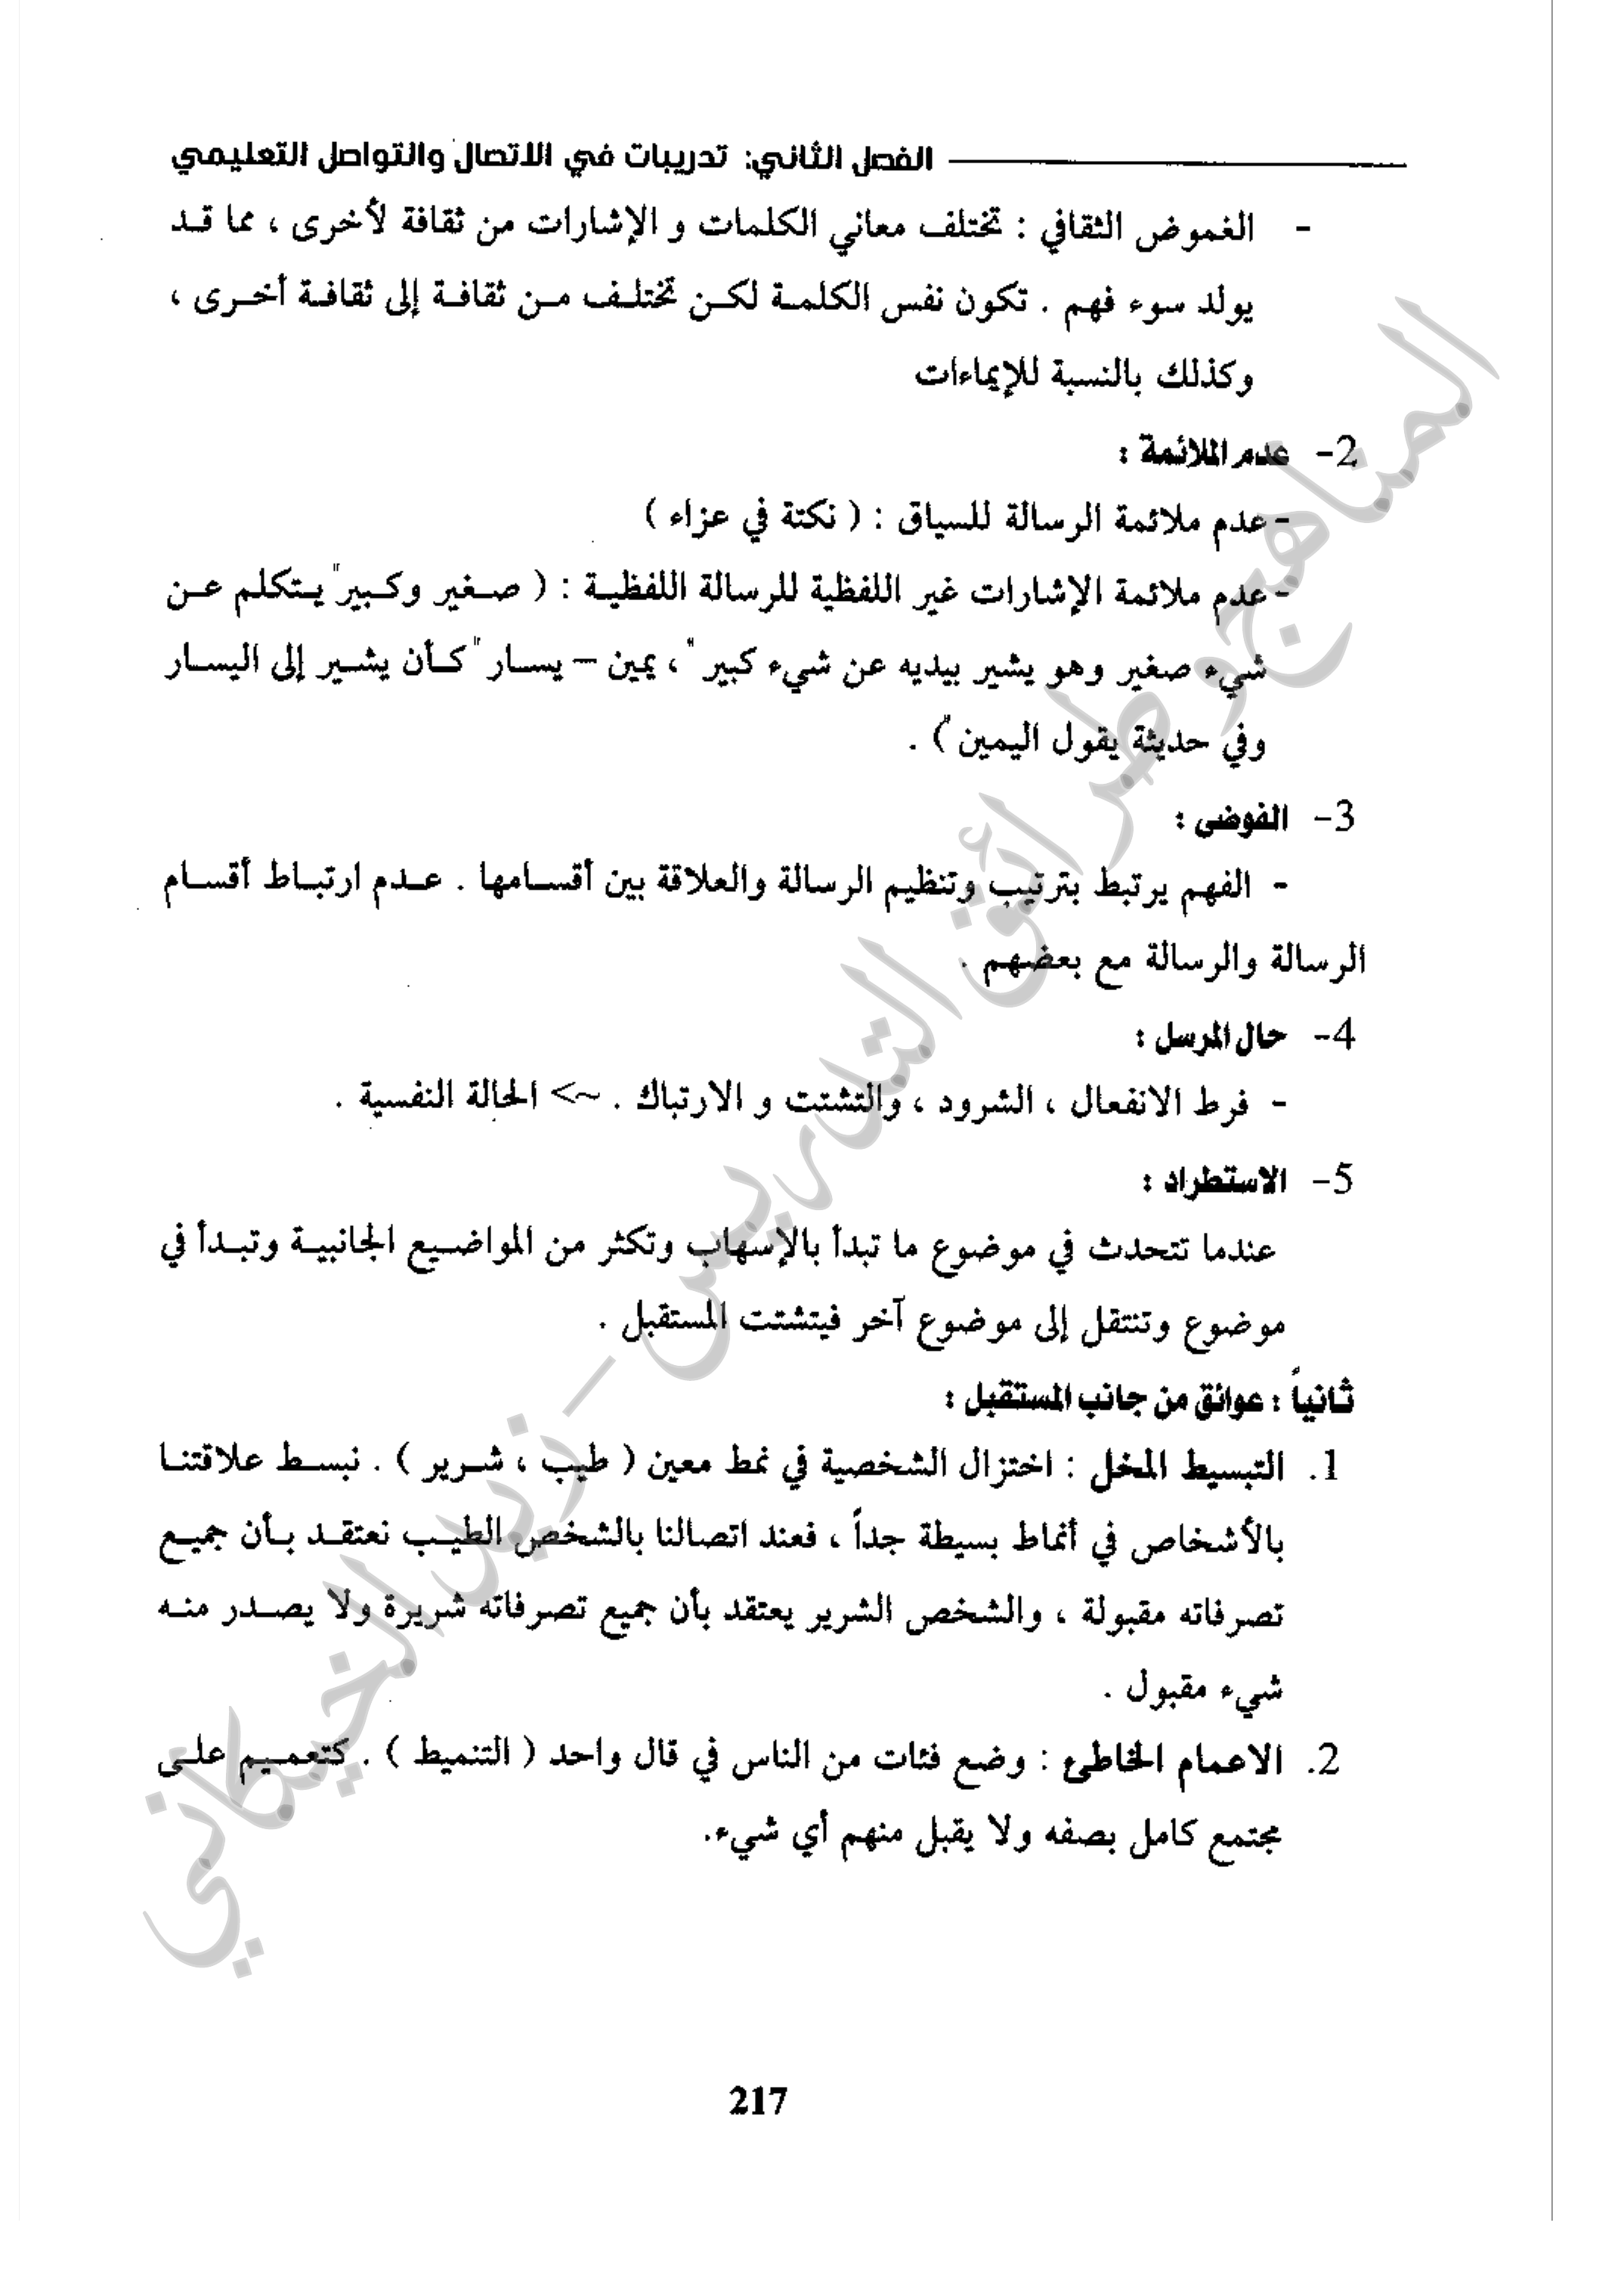 الفصل الثاني: تدريبات في الاتصال والتواصل التعليمي
- الغموض الثقافي : تختلف معاني الكلمات و الإشارات من ثقافة لأخرى ، مما قد
يولد سوء فهم . تكون نفس الكلمة لكن تختلف من ثقافة إلى ثقافة أخرى ،
وكذلك بالنسبة للإيماءات
2- عدم الملائمة :
- عدم ملائمة الرسالة للسياق : ( نكتة في عزاء )
- عدم ملائمة الإشارات غير اللفظية للرسالة اللفظية : ( صغير وكبير" يتكلم عن
شيء صغير وهو يشير بيديه عن شيء كبير " ، يمين – يسار " كأن يشير إلى اليسار
وفي حديثة يقول اليمين ") .
3- الفوضى :
- الفهم يرتبط بترتيب وتنظيم الرسالة والعلاقة بين أقسامها . عدم ارتباط أقسام
الرسالة والرسالة مع بعضهم .
4- حال المرسل :
- فرط الانفعال ، الشرود ، والتشتت و الارتباك . ~> الحالة النفسية .
5- الاستطراد :
عندما تتحدث في موضوع ما تبدأ بالإسهاب وتكثر من المواضيع الجانبية وتبدأ في
موضوع وتنتقل إلى موضوع آخر فيتشتت المستقبل .
ثانياً : عوائق من جانب المستقبل :
1. التبسيط المخل : اختزال الشخصية في نمط معين ( طيب ، شرير ) . نبسط علاقتنا
بالأشخاص في أنماط بسيطة جداً ، فعند اتصالنا بالشخص الطيب نعتقد بأن جميع
تصرفاته مقبولة ، والشخص الشرير يعتقد بأن جميع تصرفاته شريرة ولا يصدر منه
شيء مقبول .
2. الاعمام الخاطئ : وضع فئات من الناس في قال واحد ( التنميط ) . كتعميم على
مجتمع كامل بصفه ولا يقبل منهم أي شيء.
217
المناهج وطرائق التدريس – زيد الخيكاني